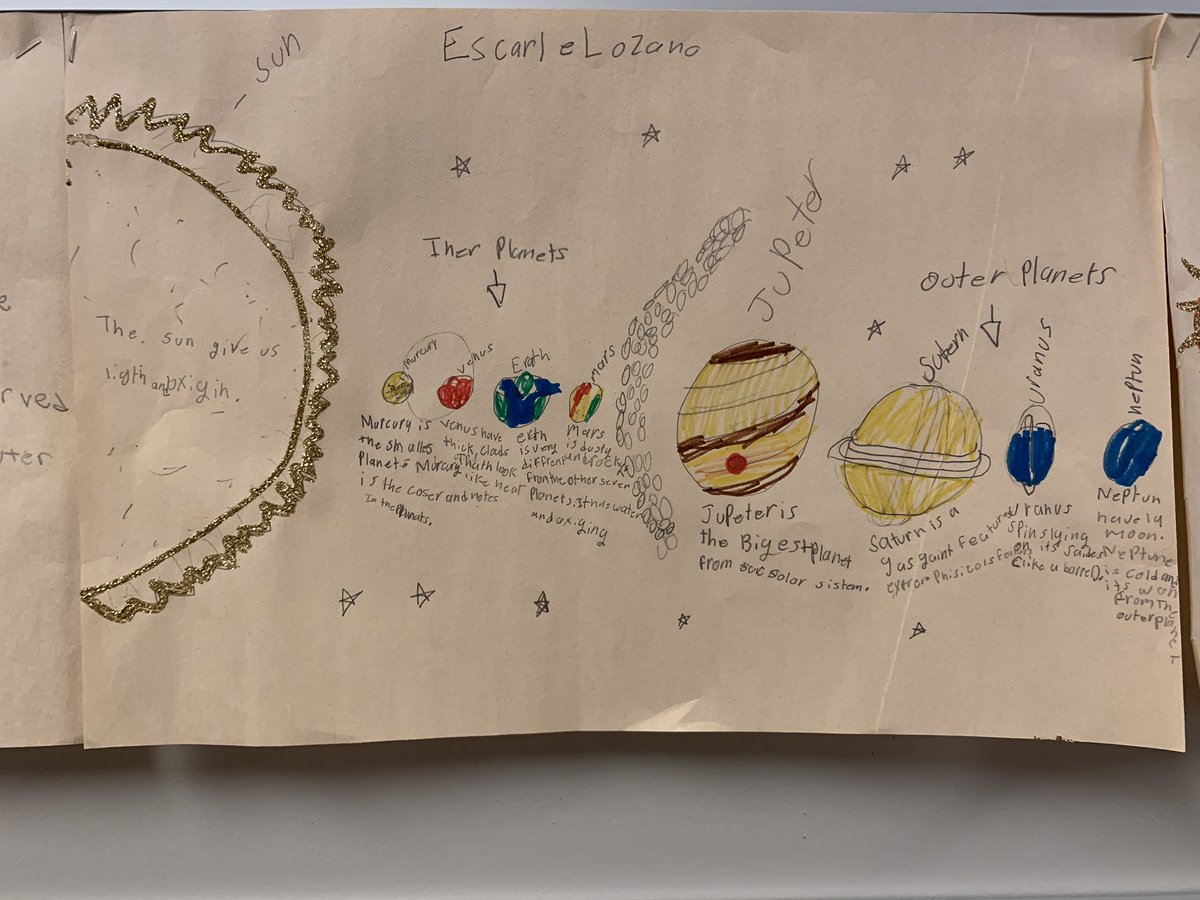 Escarle Lozano
sun
The. sun give us
ligth and oxigin.
Iner Planets
Murcury
Venus
Erath
mars
Murcury is
the smalles
Planets Murcury
is the coser and notes
In the Planats.
Venus have
thick, clads
Thath look
like heat
erth
is very
different
from the other seven
Planets, It has water
and oxiging
Mars
is dusty
Jupeter
Jupeter is
the Bigest planet
from solor sistem.
Outer Planets
Saturn
Saturn is a
gas gaint featured
Uranus
Uranus
spins lying
on its saides
(like a ballel).
neptun
Neptun
have 14
moon.
Neptune
is cold and
its won
from the
outer planet
rved